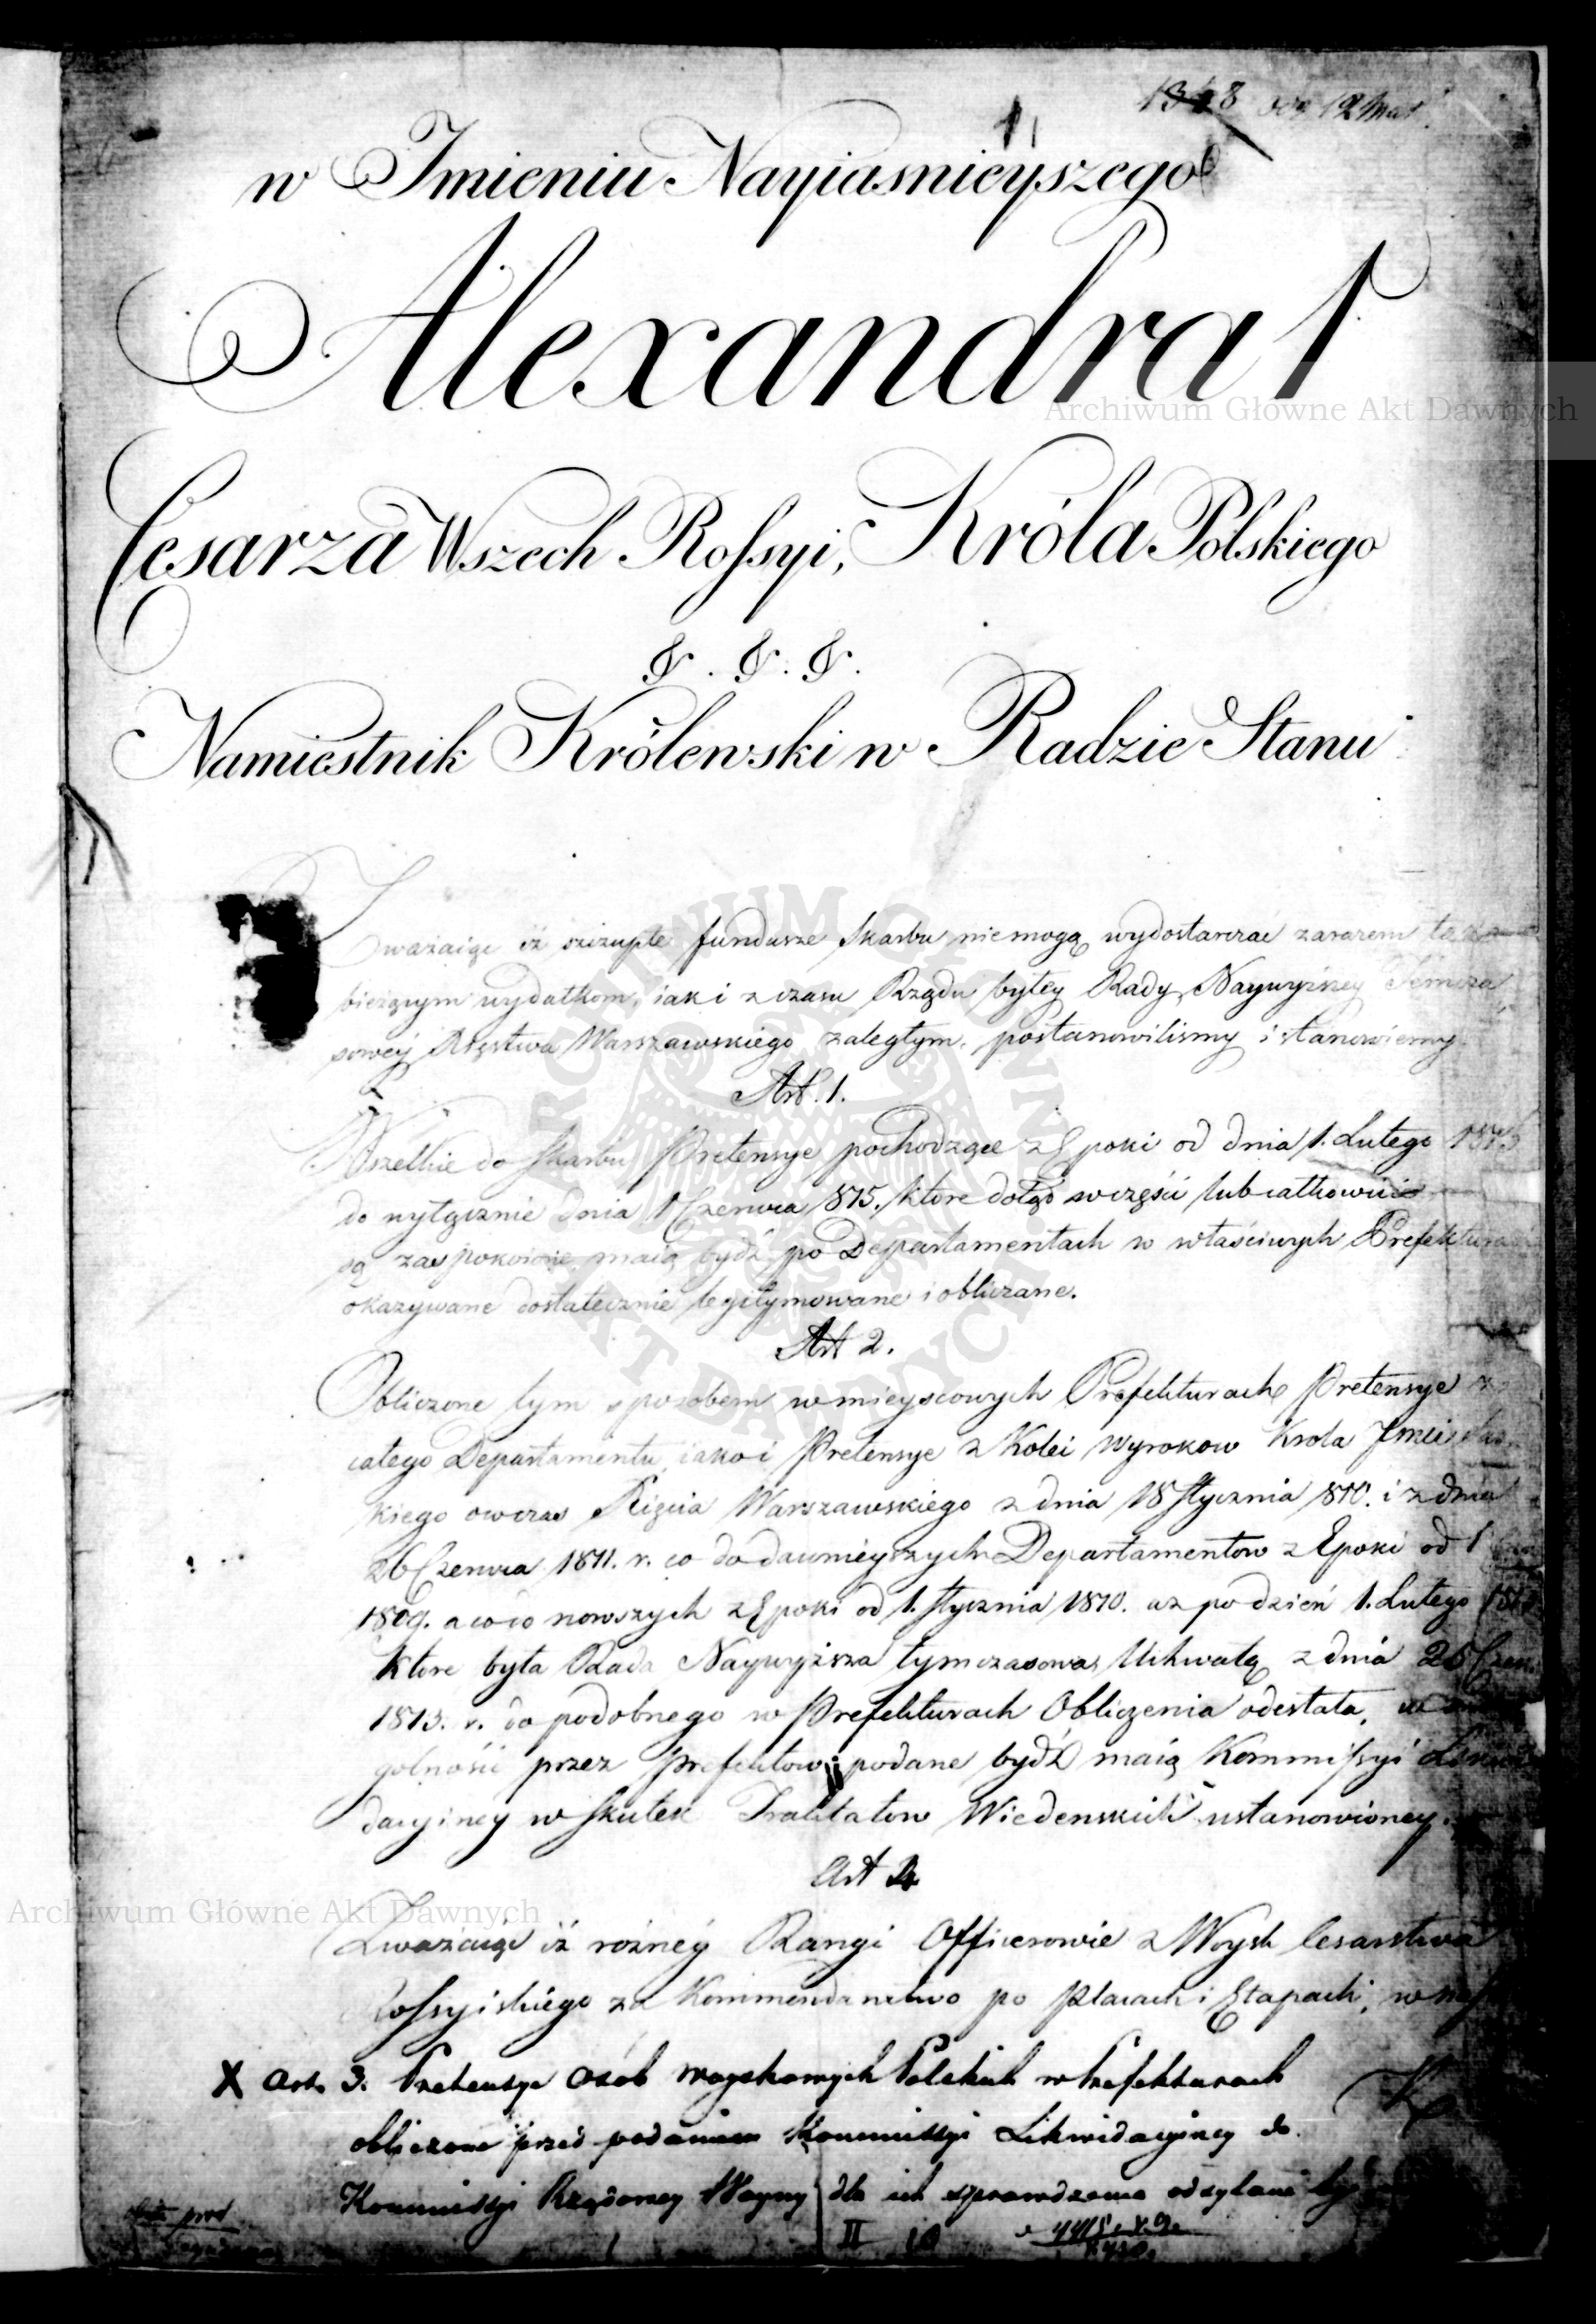 1
w Imieniu Nayiasnieyszego
Alexandra 1
Cesarza Wszech Rossyi, Króla Polskiego
&. &. &.
Namiestnik Królewski w Radzie Stanu
Zważaiąc iż szczupłe fundusze skarbu niemogą wydostarczać zarazem tak
bieżącym wydatkom, iak i z czasu Rządu byłey Rady Naywyższey Tymcza
sowey Xięstwa Warszawskiego zaległym, postanowiliśmy i stanowiemy
Art. 1.
Wszelkie do skarbu Pretensye pochodzące z Epoki od dnia 1. Lutego 1813
do wyłącznie dnia 1 Czerwca 1815, które dotąd w części lub całkowicie
są zaspokoione, maią bydź po Departamentach w właściwych Prefekturach
okazywane dostatecznie legitymowane i obliczane.
Art 2.
Obliczone tym sposobem w mieyscowych Prefekturach Pretensye z
całego Departamentu, iako i Pretensye z Kolei wyrokow Krola Jmci Sas
kiego owczas Xięcia Warszawskiego z dnia 18 Stycznia 1810. i z dnia
26 Czerwca 1811. r. co do dawnieyszych Departamentow z Epoki od 1
1809. a co do nowszych z Epoki od 1. Stycznia 1810. aż po dzień 1. Lutego 1813
ktore była Rada Naywyższa tymczasowa, Uchwałą z dnia 26 Czer.
1813. r. do podobnego w Prefekturach Obliczenia odesłała, w
gólności przez Prefektow podane bydź maią Kommissyi Likwi
dacyiney w skutek Traktatow Wiedenskich ustanowioney.
Art 4
Zważaiąc iż rożney Rangi Officerowie z Woysk Cesarstwa
Rossyiskiego za Kommendanctwo po Placach i Etapach, w
X Art. 3. Pretensye osób woyskowych Polskich w Prefekturach
obliczone przed podaniem Kommissyi Likwidacyiney do
Kommissyi Rządowey Woyny dla ich sprawdzenia odsyłane być
II 10
Archiwum Główne Akt Dawnych
Archiwum Główne Akt Dawnych
ARCHIWUM GŁÓWNE AKT DAWNYCH